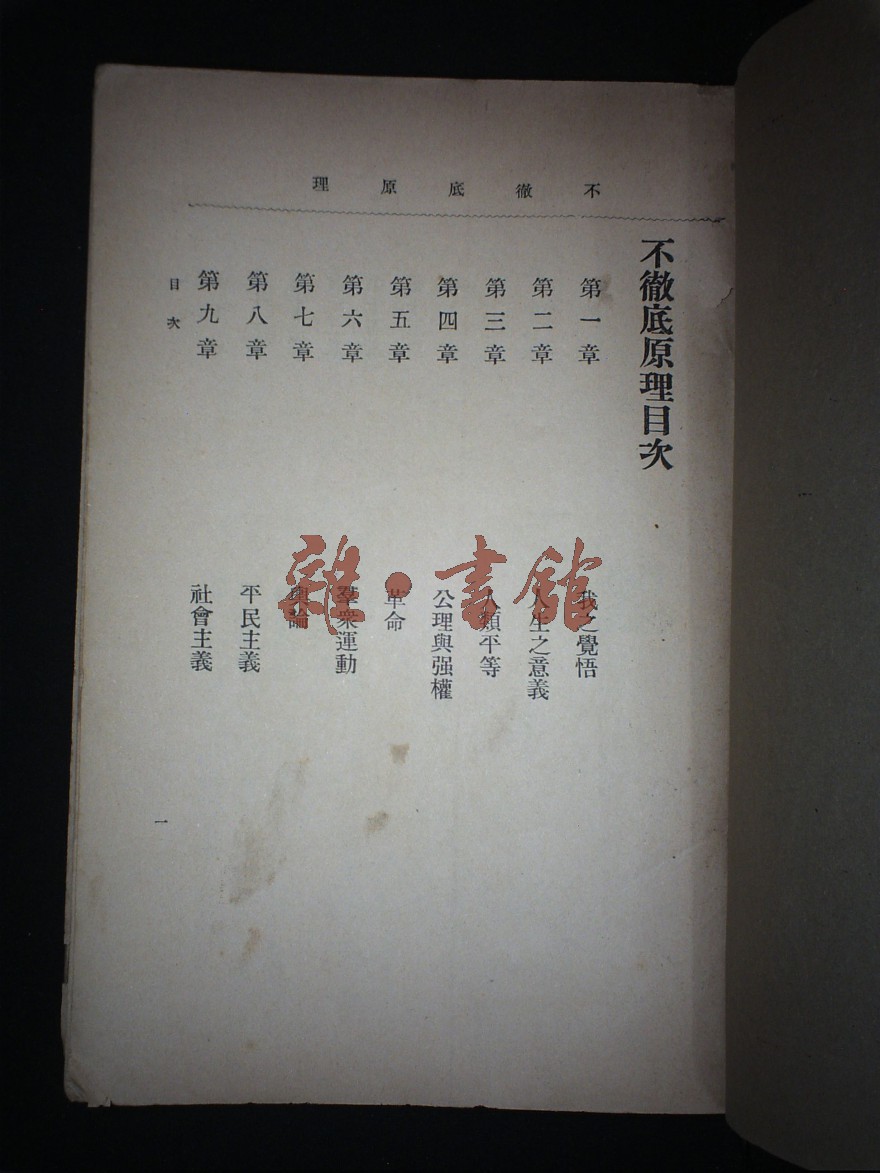 不徹底原理
不徹底原理目次
第一章 我之覺悟
第二章 人生之意義
第三章 人類平等
第四章 公理與强權
第五章 革命
第六章 羣衆運動
第七章 輿論
第八章 平民主義
第九章 社會主義
目次
一
雜·書館